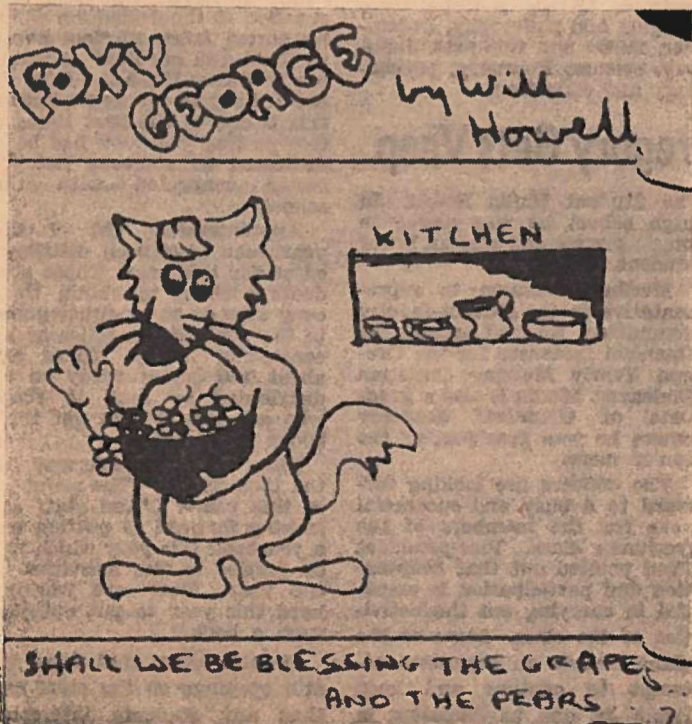 FOXY
GEORGE
by Will
Howell
KITCHEN
SHALL WE BE BLESSING THE GRAPES
AND THE PEARS
?